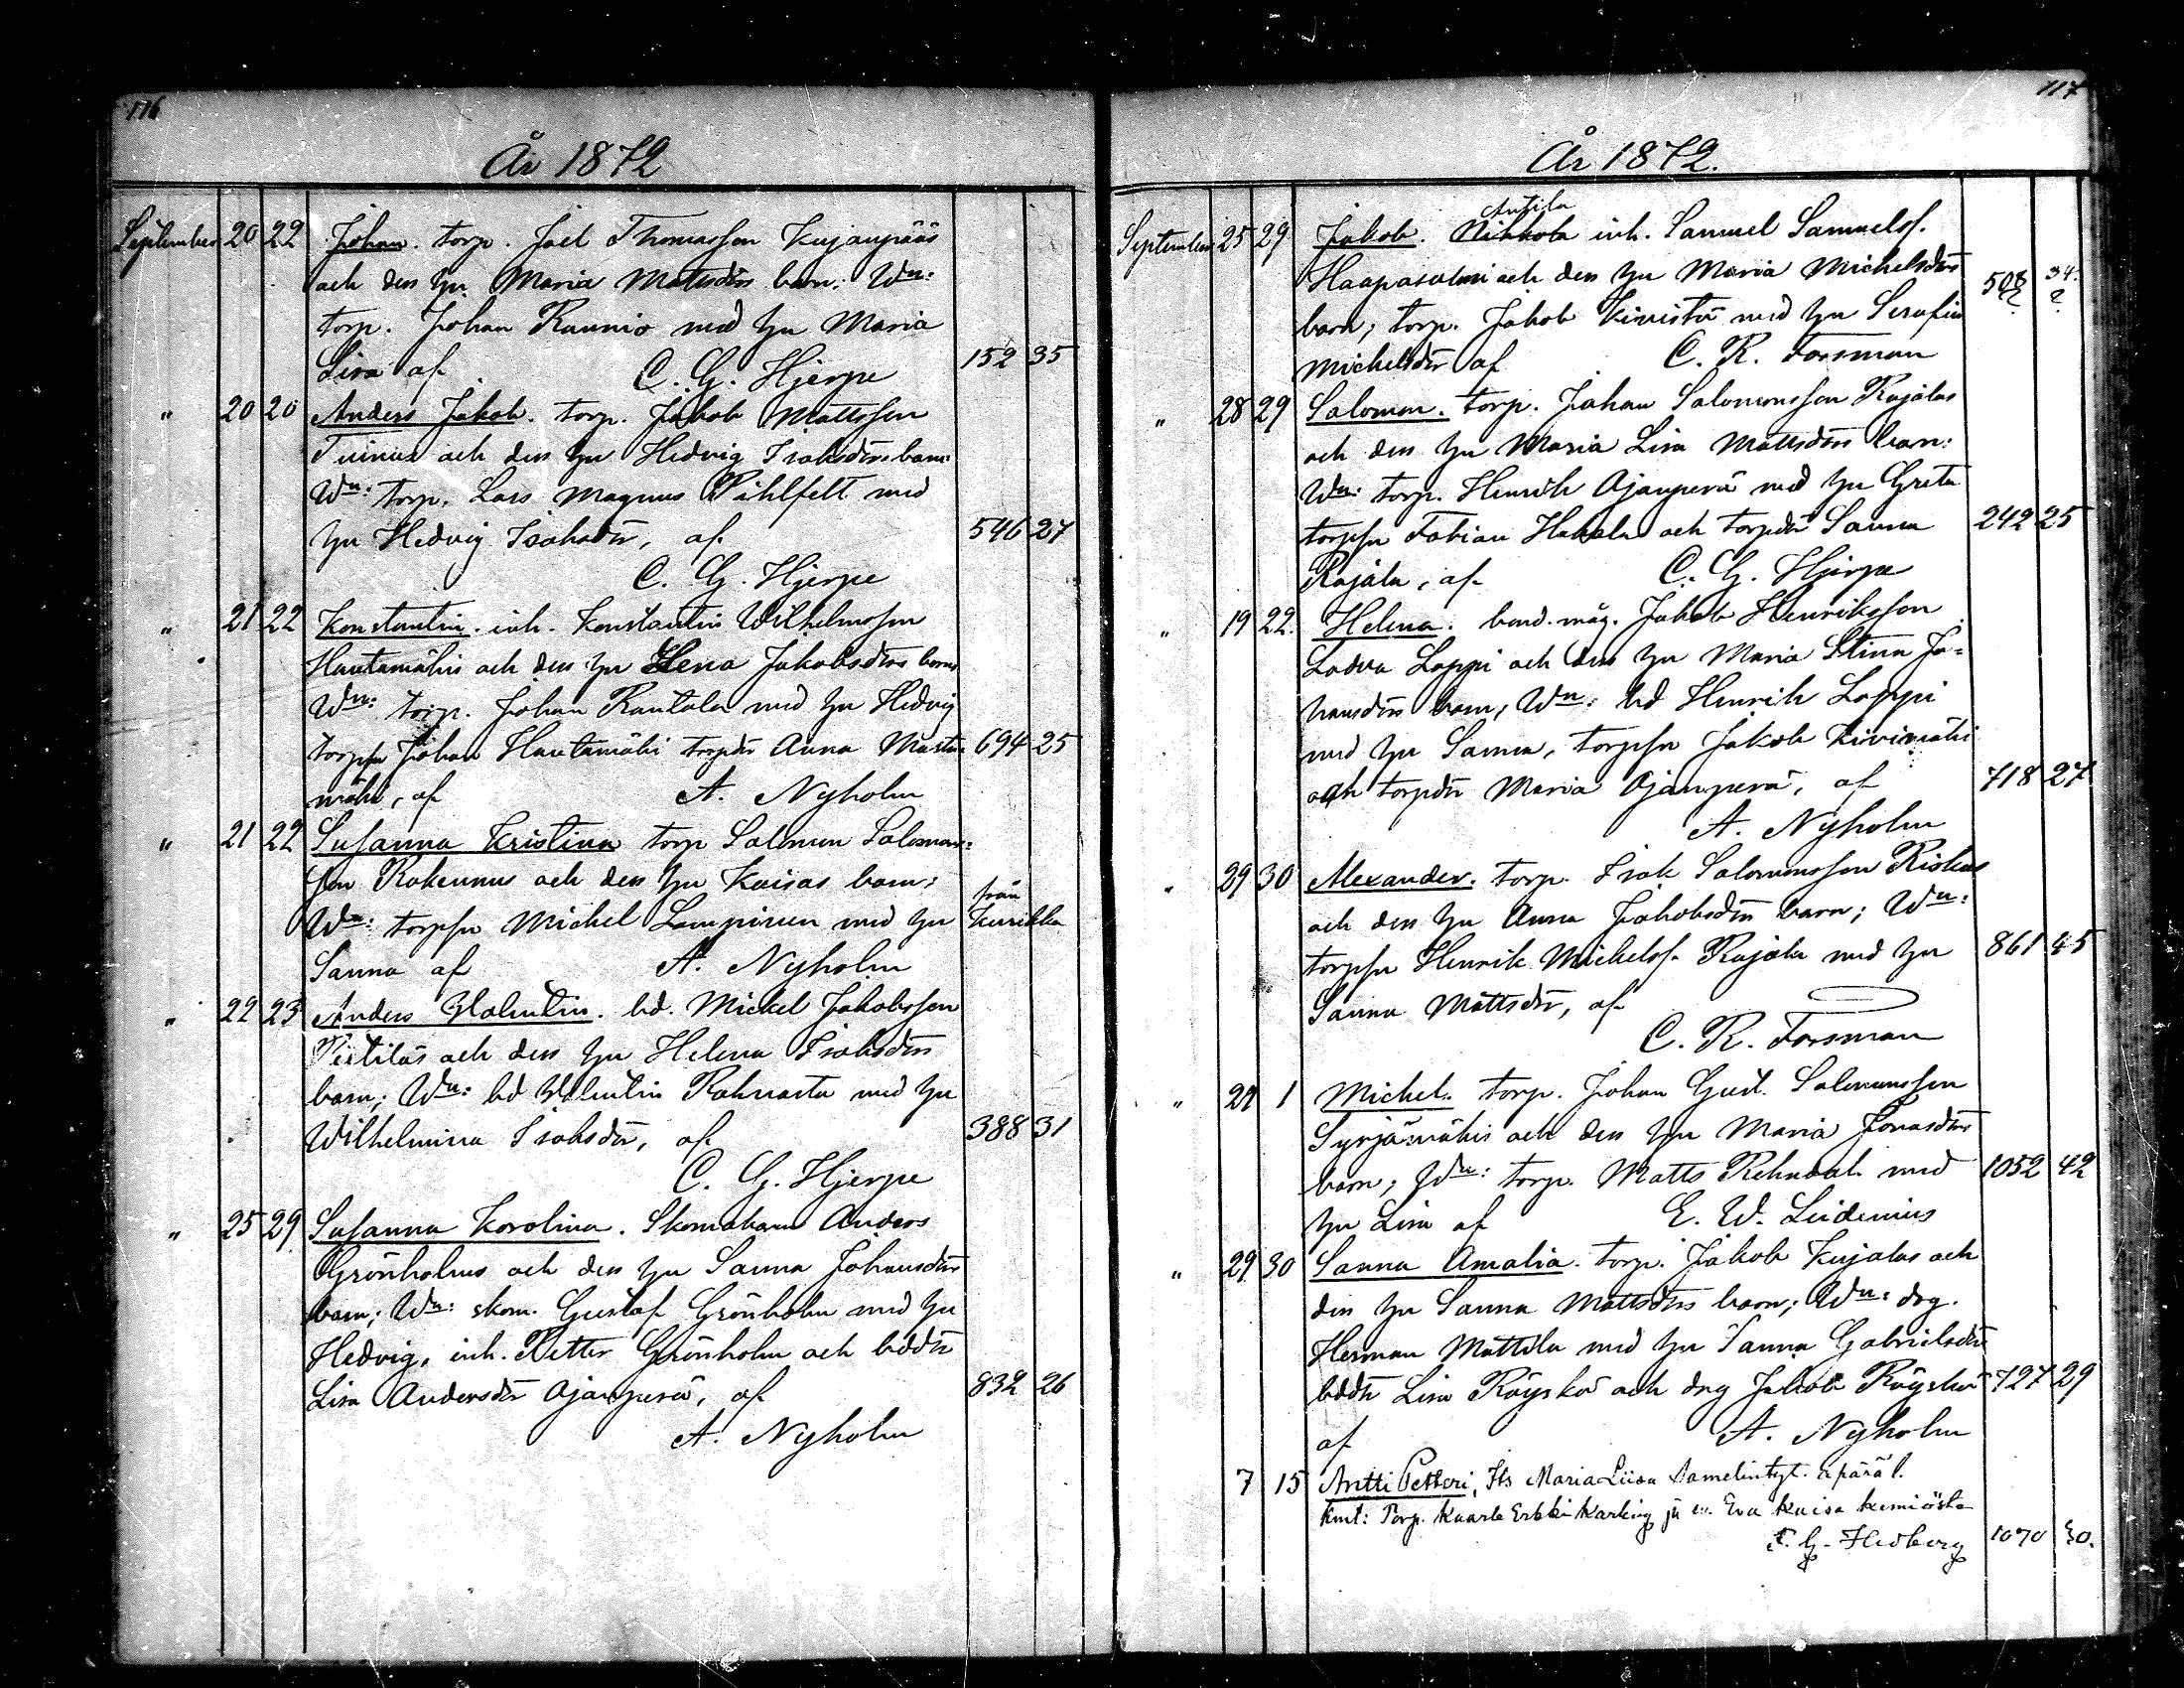 116
År 1872
September 20 22 Johan. torp. Joel Thomasson Kujanpääs
och dess hu Maria Mattsdrs barn; Wn:
torp. Johan Raunio med hu Maria
Lisa af C. G. Hjerpe 152 35
" 20 20 Anders Jakob. torp. Jakob Mattsson
och dess hu Hedvig Isaksdrs barn
Wn: torp. Lars Magnus Pihlfelt med
hu Hedvig Isaksdr, af 546 27
C. G. Hjerpe
" 21 22 Konstantin. inh. Konstantin Wilhelmsson
Hautamäkis och dess hu Lena Jakobsdrs barn
Wn: torp. Johan Rantala med hu Hedvig
torpsn Johan Hautamäki torpdr Anna Musta- 694 25
mäki, af A. Nyholm
" 21 22 Susanna Kristina torp Salomon Salomons-
son Rakennus och dess hu Kaisas barn;
Wn: torpsn Michel Lampinen med hu från Kurikka
Sanna af A. Nyholm
" 22 23 Anders Valentin. bd. Mickel Jakobsson
Pietiläs och dess hu Helena Isaksdrs
barn; Wn: bd Valentin Rahnasto med hu
Wilhelmina Isaksdr, af 388 31
C. G. Hjerpe
" 25 29 Susanna Karolina. Skomakaren Anders
Grönholms och dess hu Sanna Johansdrs
barn; Wn: skom. Gustaf Grönholm med hu
Hedvig, inh. Petter Grönholm och bddr
Lisa Andersdr Ojanperä, af 832 26
A. Nyholm
117
År 1872.
Antila
September 25 29 Jakob. Nikkola inh. Samuel Samuelss.
Haapasalmi och dess hu Maria Michelsdrs 508? 34?
barn; torp. Jakob Kivistö med hu Serafia
Michelsdr af C. R. Forsman
" 28 29 Salomon. torp. Johan Salomonsson Rajalas
och dess hu Maria Lisa Mattsdrs barn:
Wn: torp. Henrik Ojanperä med hu Greta
torpsn Fabian Hakala och torpdr Sanna 242 25
Rajala, af C. G. Hjerpe
" 19 22. Helena. bond. måg. Jakob Henriksson
Loppi och dess hu Maria Stina Jo-
hansdrs barn; Wn: bd Henrik Loppi
med hu Sanna, torpsn Jakob Kivimäki
och torpdr Maria Ojanperä, af 718 27
A. Nyholm
" 29 30 Alexander. torp. Isak Salomonsson Riskus
och dess hu Anna Jakobsdrs barn; Wn:
torpsn Henrik Michelss. Rajala med hu 861 45
Sanna Mattsdr, af
C. R. Forsman
" 29 1 Michel. torp. Johan Gust. Salomonsson
Syrjämäkis och dess hu Maria Jonasdrs
barn; Wn: torp. Matts Rehnbak med 1052 42
hu Lisa af E. W. Leidenius
" 29 30 Sanna Amalia. torp. Jakob Kujalas och
dess hu Sanna Mattsdrs barn; Wn: drg.
Herman Mattila med hu Sanna Gabrielsdr
bddr Lisa Röyskö och drg Jakob Röyskö 727 29
af A. Nyholm
7 15 Antti Petteri, Its Maria Liisa Samelintyt. äpärä l.
Kmt: Torp. Kaarle Erkki Karling ja Eva Kaisa
F. G. Hedberg 1070 30.